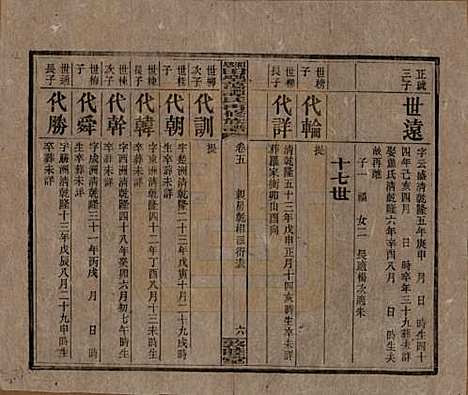 正琥
三子
世遠
字云盛清乾隆五年庚申 月 日 時生四十
四年己亥四月 日 時卒年三十九葬未詳
娶龐氏清乾隆六年辛酉八月 日 時生
故再離
子一 福 女二 長適楊次適朱
十七世
世榜
子
代輪
提
世柳
長子
代詳
清乾隆五十三年戊申正月十四亥時生卒未詳
葬羅家衝卯山酉向
卷五
六
敦睦堂
世柳
次子
代訓
提
世桂
子
代朝
字楚洲清乾隆二十三年戊寅十月二十九戌時
生卒葬未詳
世棟
長子
代韓
字東洲清乾隆四十二年丁酉八月十三未時生
卒葬未詳
世棟
次子
代幹
字西洲清乾隆四十八年癸卯六月初七午時生
卒葬未詳
世梅
子
代舜
字成洲清乾隆三十一年丙戌 月 日 時
生卒葬未詳
世通
長子
代勝
字勝洲清乾隆十三年戊辰八月二十九申時生
卒葬未詳